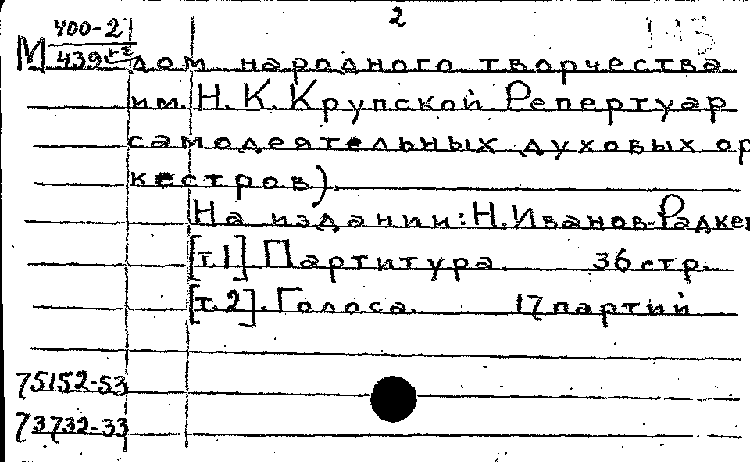 2
М 400-2
439
дом народного творчества
им. Н. К. Крупской Репертуар
самодеятельных духовых ор
кестров).
На издании: Н. Иванов-Радкев
[т.1] Партитура. 36 стр.
[т.2]. Голоса. 17 партий
75152-53
73732-33